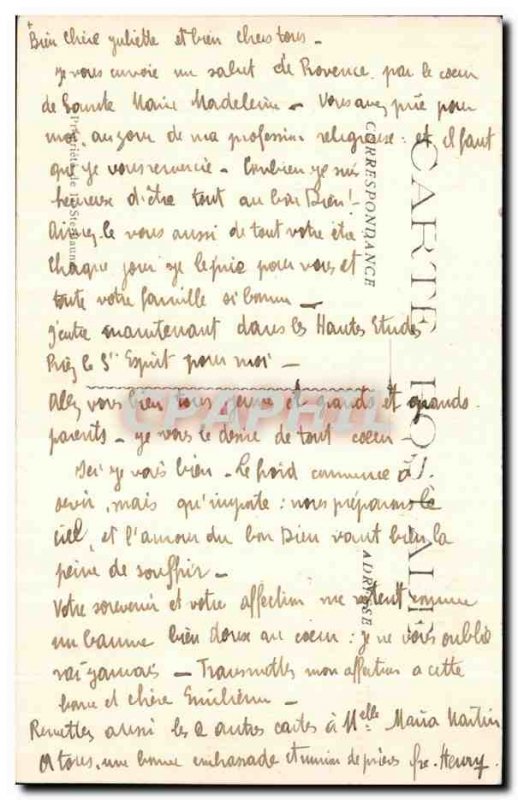 Bien chère Juliette et bien chers tous -
Je vous envoie un salut de Provence par le cœur
de Sainte Marie Madeleine - Vous avez prié pour
moi, au jour de ma profession religieuse : et il faut
que je vous remercie - Combien je suis
heureux d'être tout au bon Dieu !
Aimez le vous aussi de tout votre être
Chaque jour je le prie pour vous et
toute votre famille si bonne -
J'entre maintenant dans les Hautes Etudes
Priez le St Esprit pour moi -
Allez vous bien tous jeunes et grands et grands
parents - je vous le désire de tout cœur
Ici je vais bien - Le froid commence à
sévir, mais qu'importe : nous préparons le
ciel, et l'amour du bon Dieu vaut bien la
peine de souffrir -
Votre souvenir et votre affection me restent comme
un baume bien doux au cœur : je ne vous oublie
rai jamais - Transmettez mon affection a cette
bonne et chère Emilienne -
Remettez aussi les 2 autres cartes à Melle Maria Martin
A tous, une bonne embrassade et union de prières fre. Henry.
CARTE POSTALE
CORRESPONDANCE
ADRESSE
Propriété de la Ste Baume
CPAPHIL